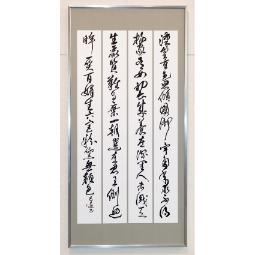 漢皇重色思傾國御宇多年求不得
楊家有女初長成養在深閨人未識天
生麗質難自棄一朝選在君王側迴
眸一笑百媚生六宮粉黛無顔色